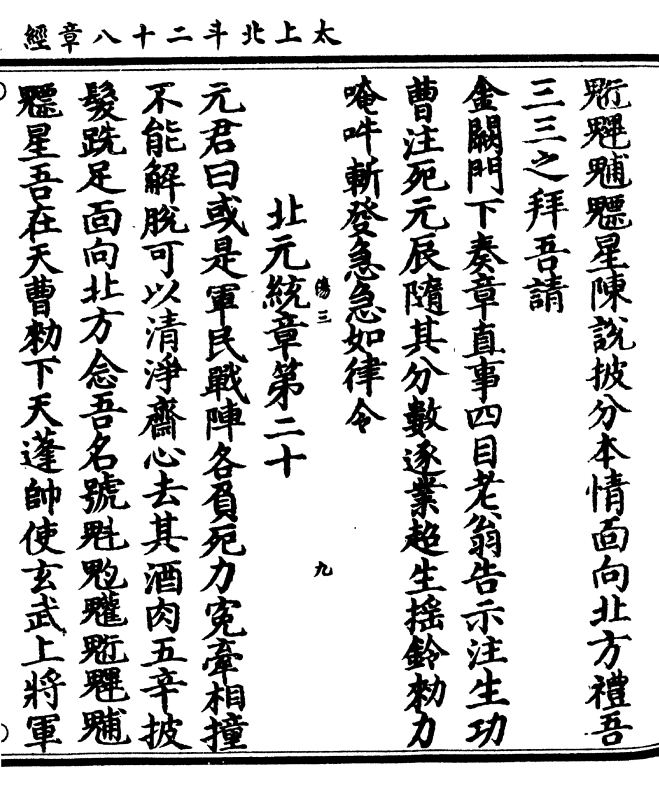 太上北斗二十八章經
魒魓䰢魒星陳說披分本情面向北方禮吾
三三之拜吾請
金闕門下奏章直事四目老翁告示注生功
曹注死元辰隨其分數逐業超生搖鈴勑力
唵吽斬發急急如律令
傷三
九
北元統章第二十
元君曰或是軍民戰陣各負死力寃牽相撞
不能解脫可以清淨齋心去其酒肉五辛披
髮跣足面向北方念吾名號
星吾在天曹勑下天蓬帥使玄武上將軍